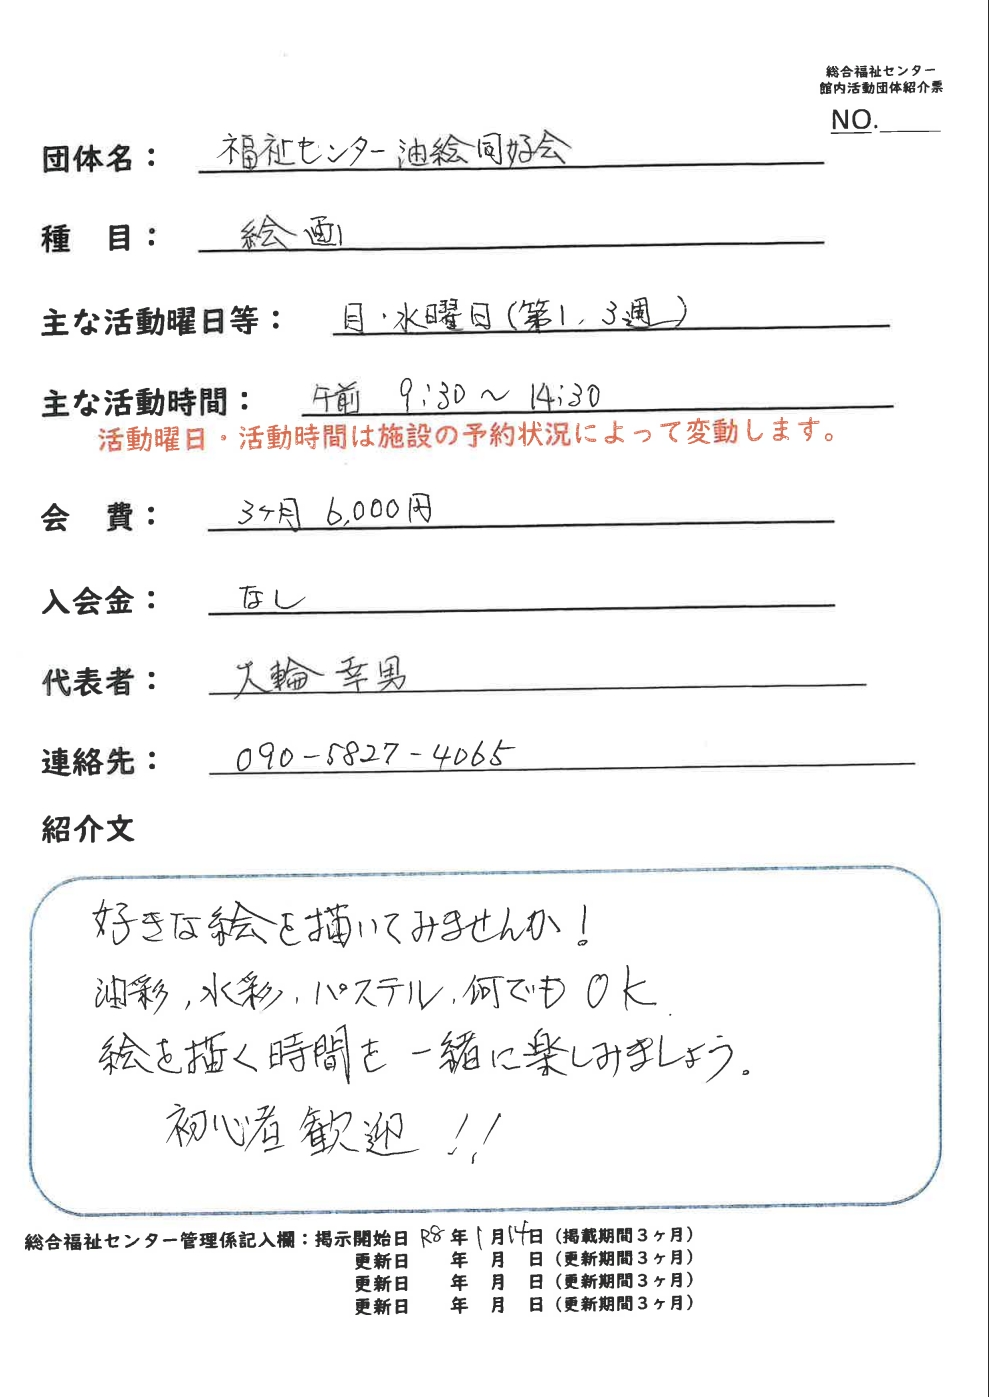 総合福祉センター
館内活動団体紹介票
NO.
団体名： 福祉センター油絵同好会
種　目： 絵画
主な活動曜日等： 月・水曜日（第1、3週）
主な活動時間： 午前 9:30～14:30
活動曜日・活動時間は施設の予約状況によって変動します。
会　費： 3ヶ月 6,000円
入会金： なし
代表者： 大輪 幸男
連絡先： 090-5827-4065
紹介文
好きな絵を描いてみませんか！
油彩、水彩、パステル、何でもOK
絵を描く時間を一緒に楽しみましょう。
初心者歓迎!!
総合福祉センター管理係記入欄：掲示開始日 R8年1月14日（掲載期間３ヶ月）
更新日　　年　月　日（更新期間３ヶ月）
更新日　　年　月　日（更新期間３ヶ月）
更新日　　年　月　日（更新期間３ヶ月）